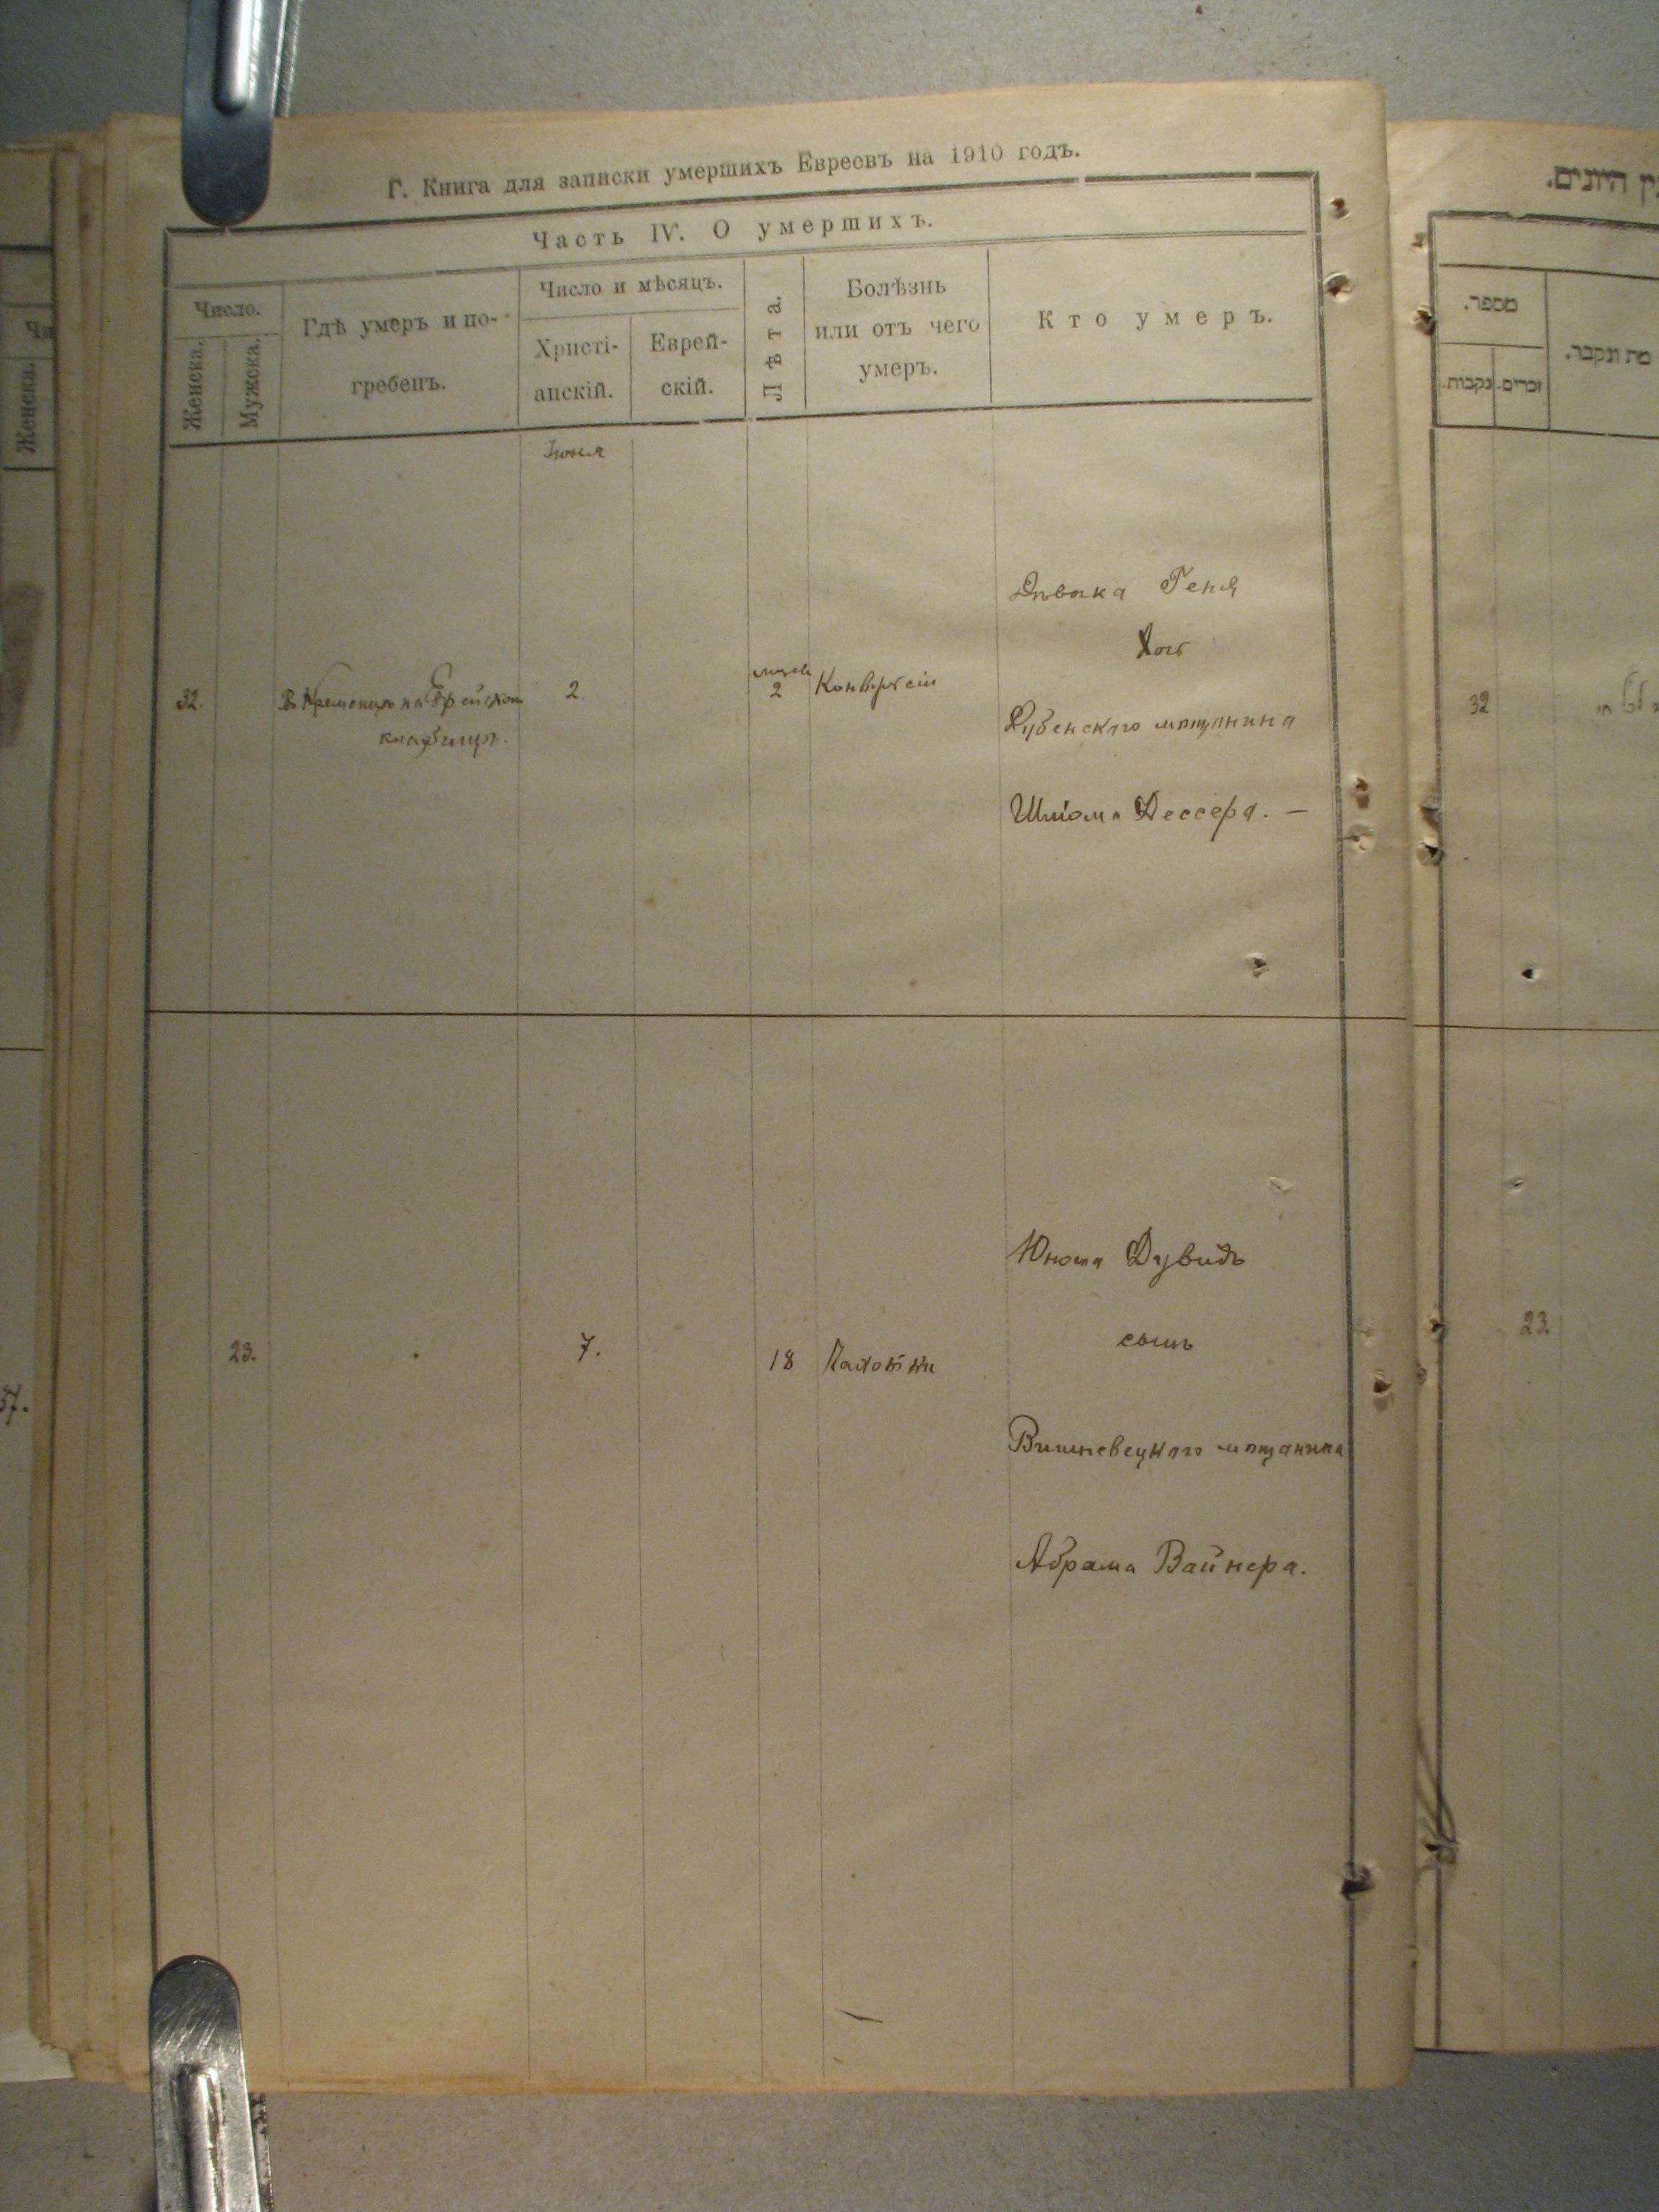 Г. Книга для записки умершихъ Евреевъ на 1910 годъ.
Часть IV. О умершихъ.
Число.
Женска.
Мужска.
Гдѣ умеръ и по-
гребенъ.
Число и мѣсяцъ.
Христі-
анскій.
Еврей-
скій.
Лѣта.
Болѣзнь
или отъ чего
умеръ.
Кто умеръ.
Іюня
32.
В Кременцѣ на Еврейском
кладбищѣ.
2.
2
Дѣвочка Геня
Дочь
Дубенского мѣщанина
Шліома Дессера. —
23.
7.
18
Чахотки
Юноша Дувидъ
сынъ
Вишневецкого мѣщанина
Абрама Вайнера.
Чи
Женска.
37.
היונים.
מספר.
נקבות.
זכרים.
מת ונקבר.
32
23